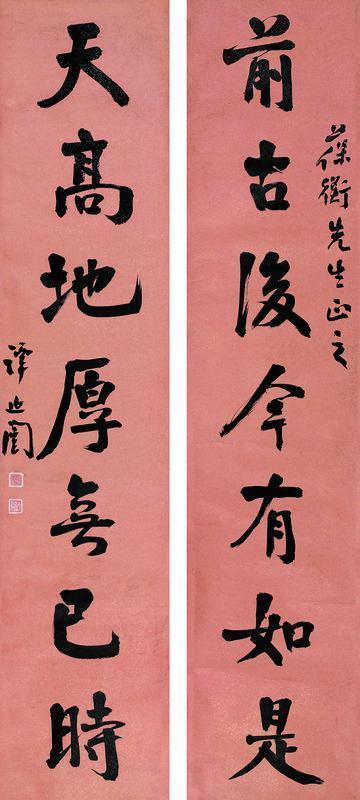 前古後今有如是
葆衡先生正之
天高地厚無已時
譚延闓